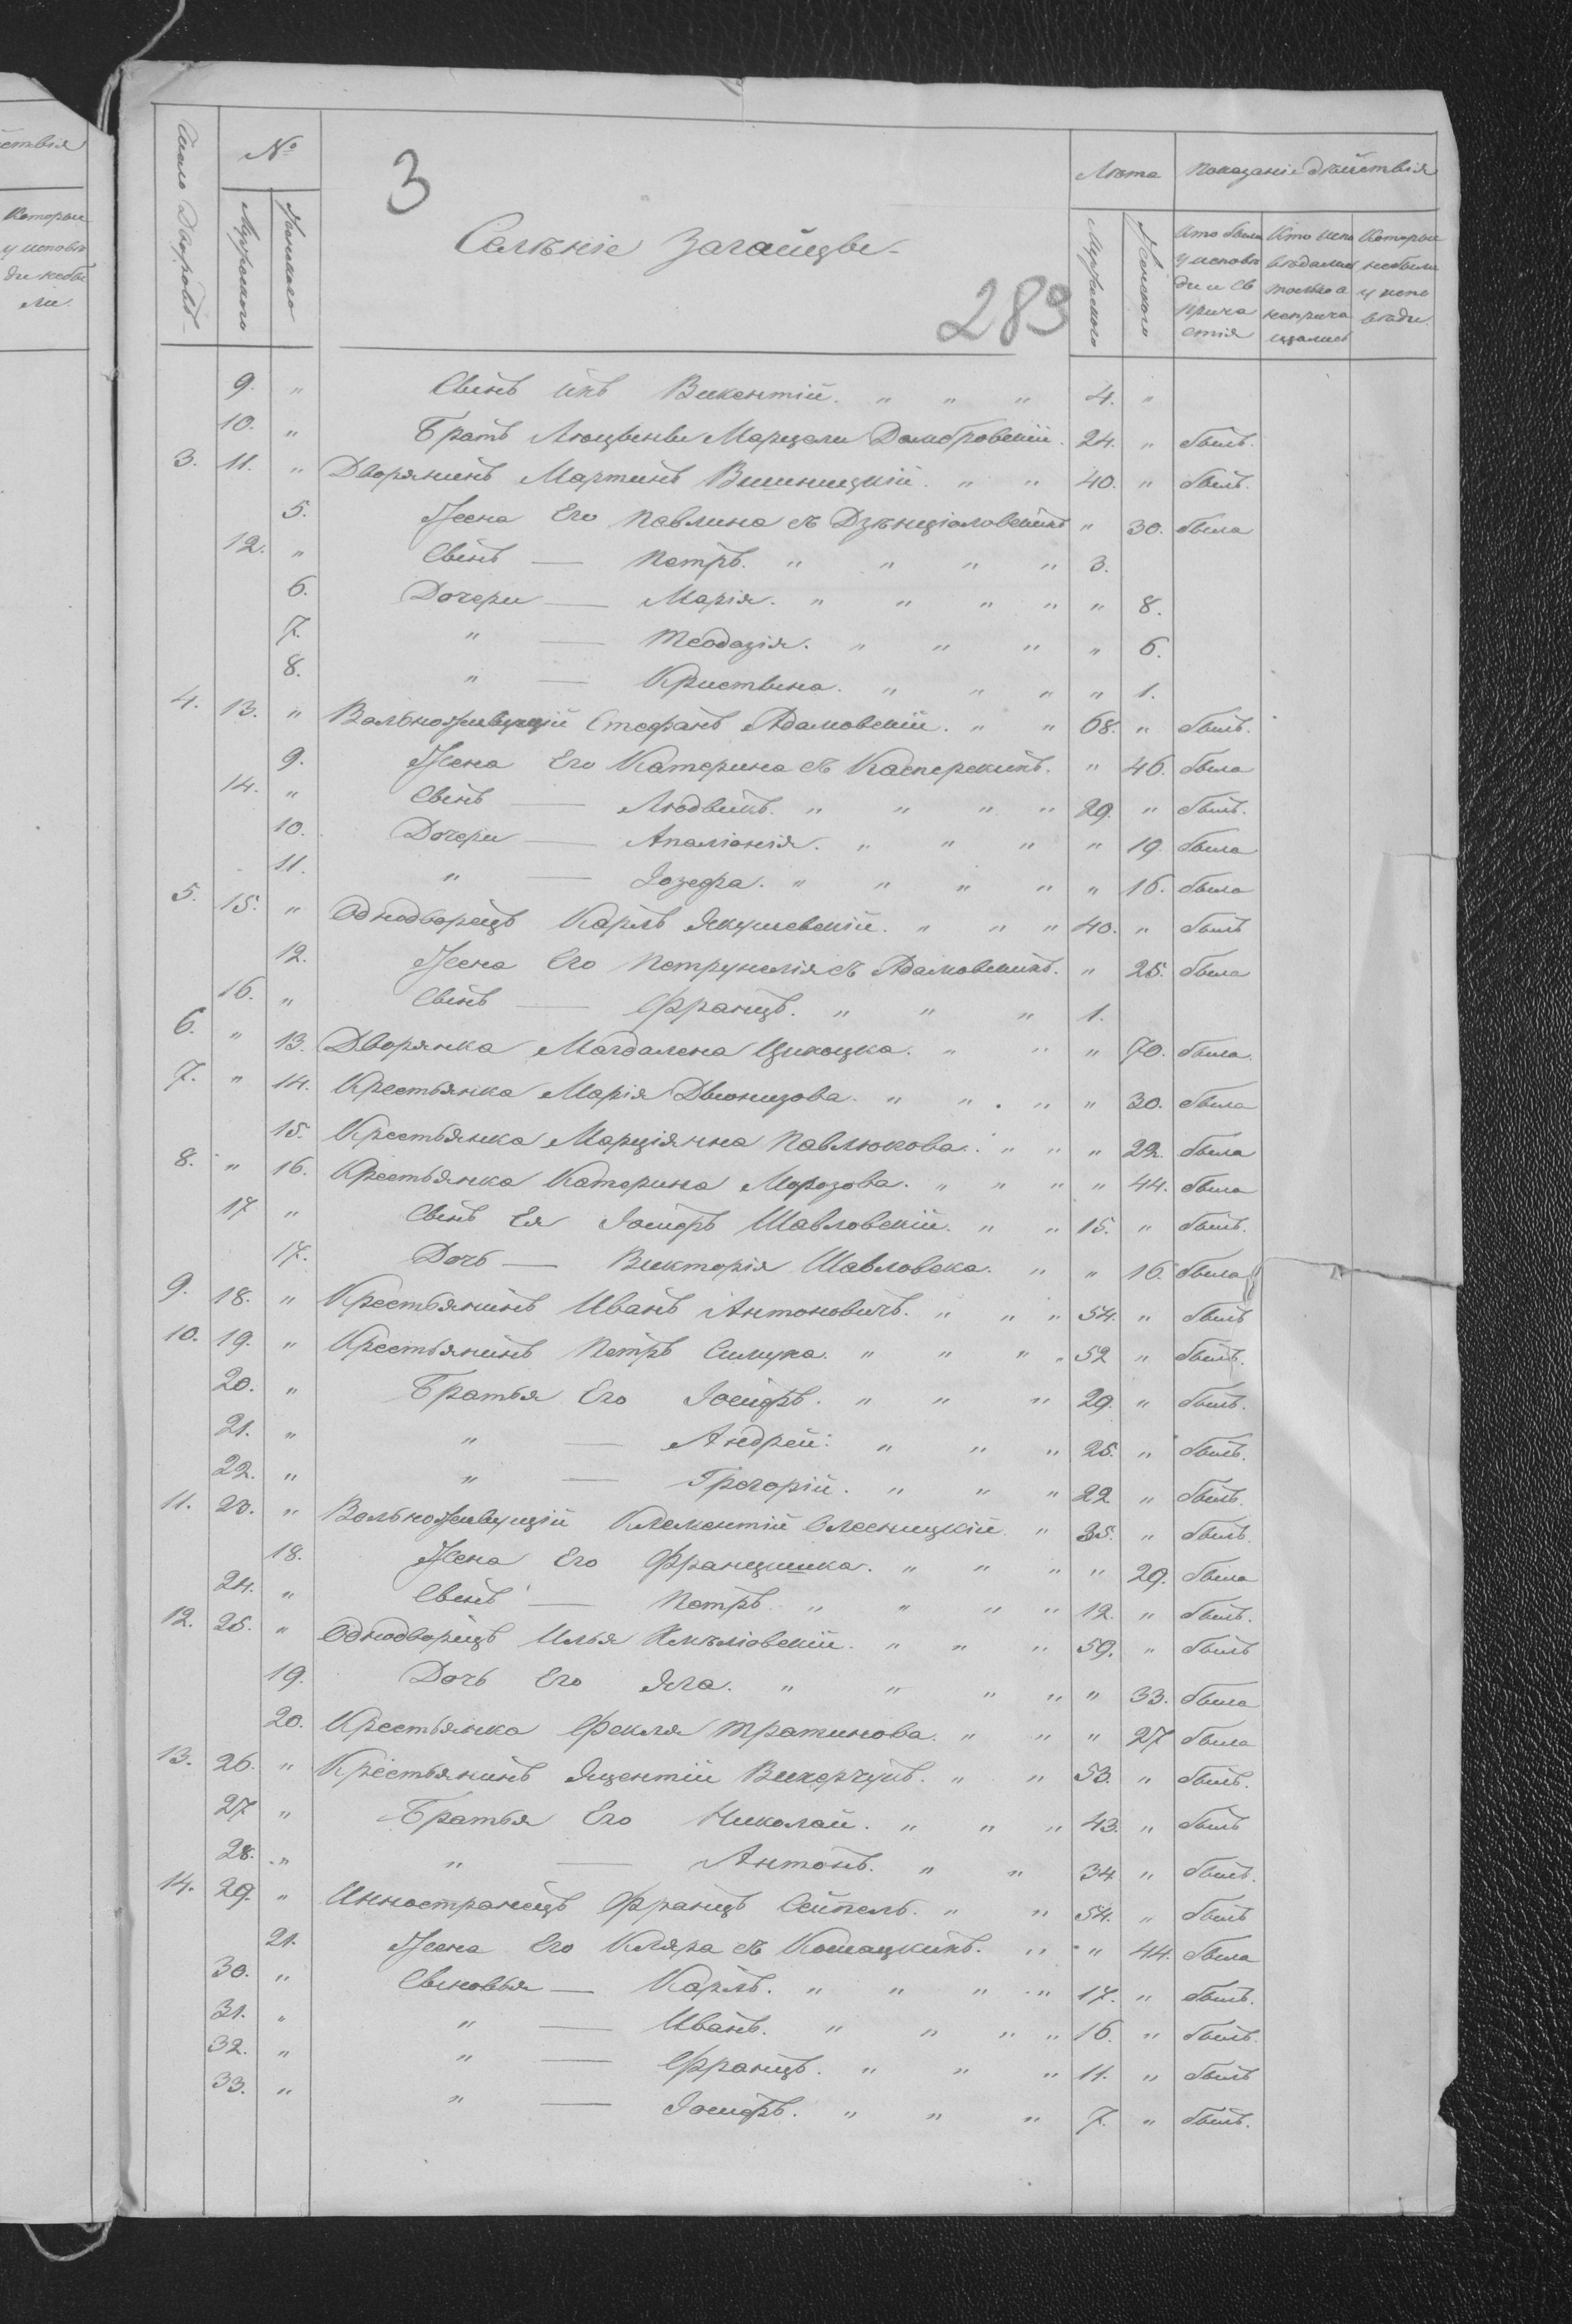 ствія
Которые
у испов
ди небы
ли.
Число Дворовъ
№
Мужескаго
Женскаго
3
Селѣніе Загайцы
289
Лѣта
Показаніе дѣйствія
Мужескаго
Женскаго
Кто былъ у исповѣди и св причастія
Кто исповѣдался только а непричащались
Которые небыли у исповѣди
9. " Сынъ ихъ Викентій. " " " 4. "
10. " Братъ Люцыны Марцели Домбровскій. 24. " былъ.
3. 11. " Дворянинъ Мартинъ Вишницкій. " " 40. " былъ.
5. Жена Его Павлина съ " 30. была
12. " Сынъ — Петръ. " " " " 3.
6. Дочери — Марія. " " " " " 8.
7. " — Теодозія. " " " " 6.
8. " — Кристына. " " " " 1.
4. 13. " Вольноживущій Стефанъ Адамовскій. " " 68. " былъ.
9. Жена Его Катерина съ Касперскихъ. " 46. была
14. " Сынъ — Людвикъ. " " " " 29. " былъ.
10. Дочери — Аполіонія. " " " " 19. была
11. " — Іозефа. " " " " " 16. была
5. 15. " Однодворецъ Карлъ Якушевскій. " " " 40. " былъ
12. Жена Его Петрунелія съ Адамовскихъ. " 25. была
16. " Сынъ — Францъ. " " " 1.
6. " 13. Дворянка Магдалена " " " 70. была.
7. " 14. Крестьянка Марія Двонизова. " " " " 30. была
15. Крестьянка Марціянна Павлюкова. " " " 22. была
8. " 16. Крестьянка Катерина Морозова. " " " " 44. была
17 " Сынъ Ея Іосифъ Шавловскій. " " 15. " былъ.
17. Дочь — Викторія Шавловска. " " 16. была
9. 18. " Крестьянинъ Иванъ Антоновичъ. " " " 54. " былъ
10. 19. " Крестьянинъ Петръ Симука. " " " " 52 " былъ.
20. " Братья Его Іосифъ. " " " 29. " былъ.
21. " " — Андрей. " " " 25. " былъ.
22. " " — Грегорій. " " " 22 " былъ.
11. 23. " Вольноживущій Клементій Олесницкій. " 35. " былъ.
18. Жена Его Францишка. " " " " 29. была
24. " Сынъ — Петръ. " " " " 12. " былъ.
12. 25. " Однодворецъ Илья " " " 59. " былъ
19. Дочь Его Яга. " " " " " 33. была
20. Крестьянка Фекля Тратинова. " " " 27 была
13. 26. " Крестьянинъ Яцентій " " 53. " былъ.
27 " Братья Его Николай. " " " 43. " былъ
28. " " — Антонъ. " " 34. " былъ.
14. 29. " Инностранецъ Францъ Сейпель. " " 54. " былъ
21. Жена Его Кляра съ Комацкихъ. " " 44. была
30. " Сыновья — Карлъ. " " " " 17. " былъ.
31. " " — Иванъ. " " " " 16. " былъ.
32. " " — Францъ. " " " 11. " былъ
33. " " — Іосифъ. " " " 7. " былъ.